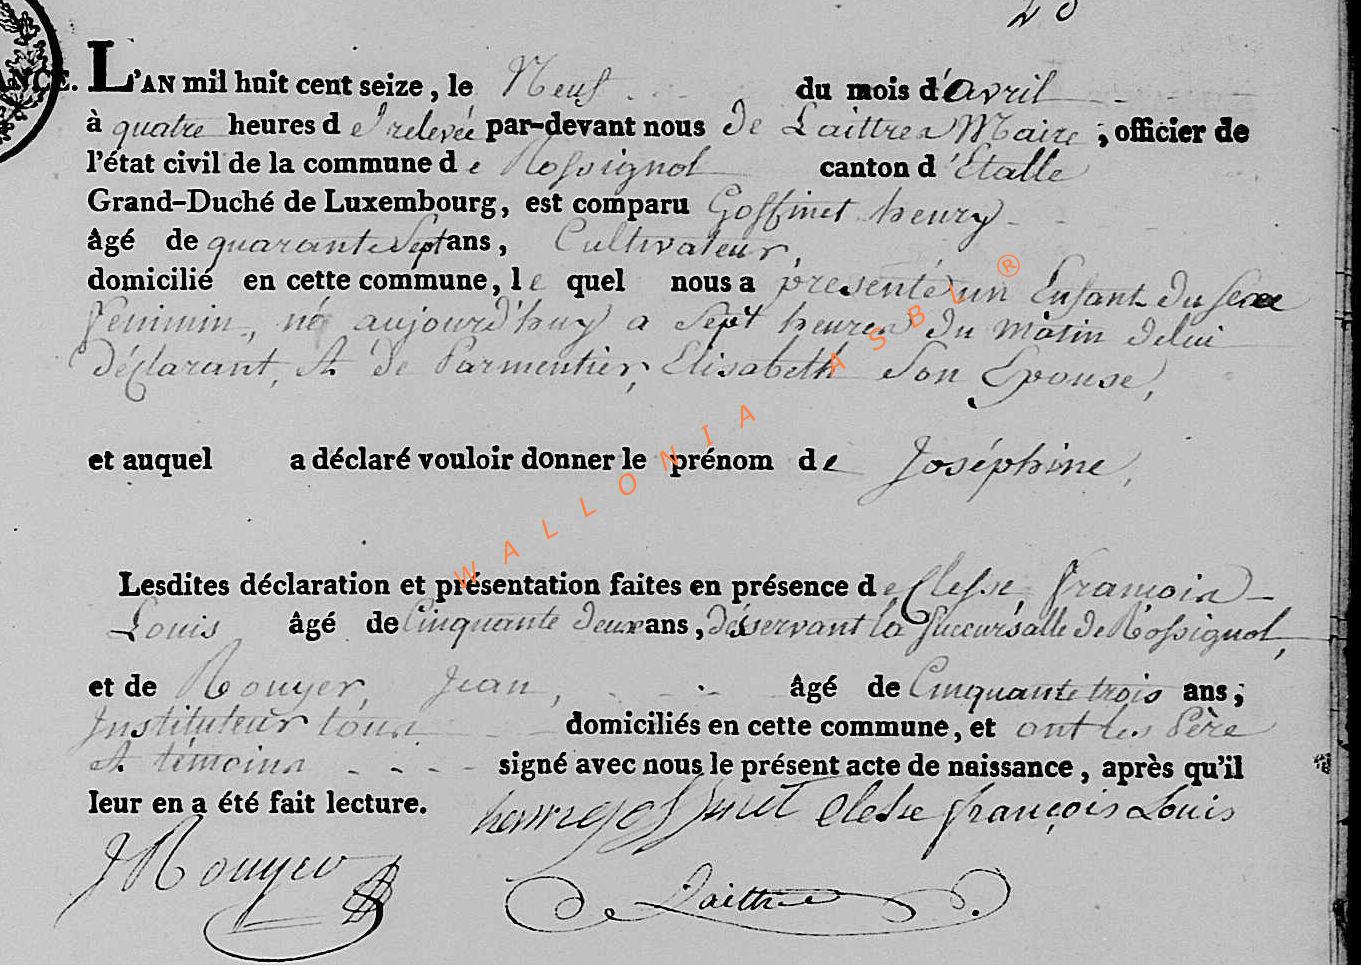 28
ANCE. L'AN mil huit cent seize, le Neuf du mois d'avril
à quatre heures de relevée par-devant nous De Laittres Maire, officier de
l'état civil de la commune de Rossignol canton d'Etalle
Grand-Duché de Luxembourg, est comparu Goffinet henry
âgé de quarante Sept ans, Cultivateur,
domicilié en cette commune, le quel nous a présenté un Enfant du sexe
féminin, né aujourd'huy a Sept heures du matin de lui
Déclarant, et de Parmentier, Elisabeth Son Epouse,
et auquel a déclaré vouloir donner le prénom de Joséphine,
Lesdites déclaration et présentation faites en présence de Clesse, françois
Louis âgé de Cinquante deux ans, désservant la Succursalle de Rossignol,
et de Rouyer, Jean, âgé de Cinquante trois ans;
Instituteur tous domiciliés en cette commune, et ont les Père
et témoins signé avec nous le présent acte de naissance, après qu'il
leur en a été fait lecture. henry goffinet Clesse françois Louis
J Rouyer De Laittre
WALLONIA ASBL ®